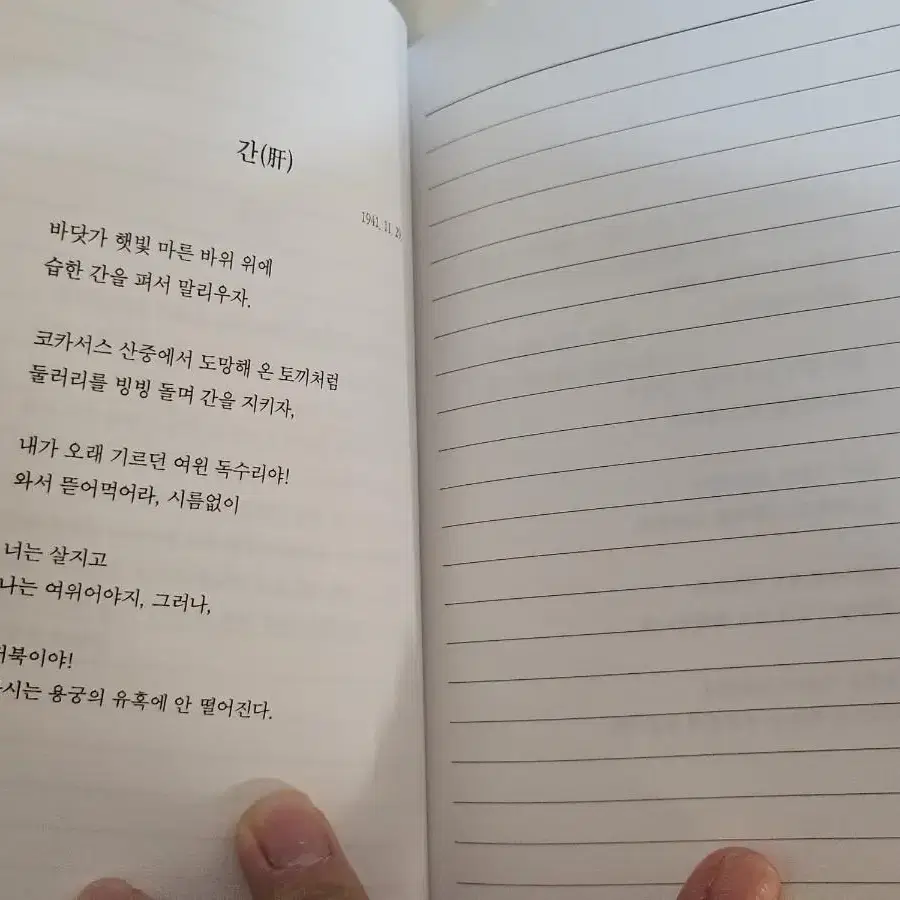 간(肝)
1941. 11. 29
바닷가 햇빛 마른 바위 위에
습한 간을 펴서 말리우자.
코카서스 산중에서 도망해 온 토끼처럼
둘러리를 빙빙 돌며 간을 지키자,
내가 오래 기르던 여윈 독수리야!
와서 뜯어먹어라, 시름없이
너는 살지고
나는 여위어야지, 그러나,
거북이야!
다시는 용궁의 유혹에 안 떨어진다.